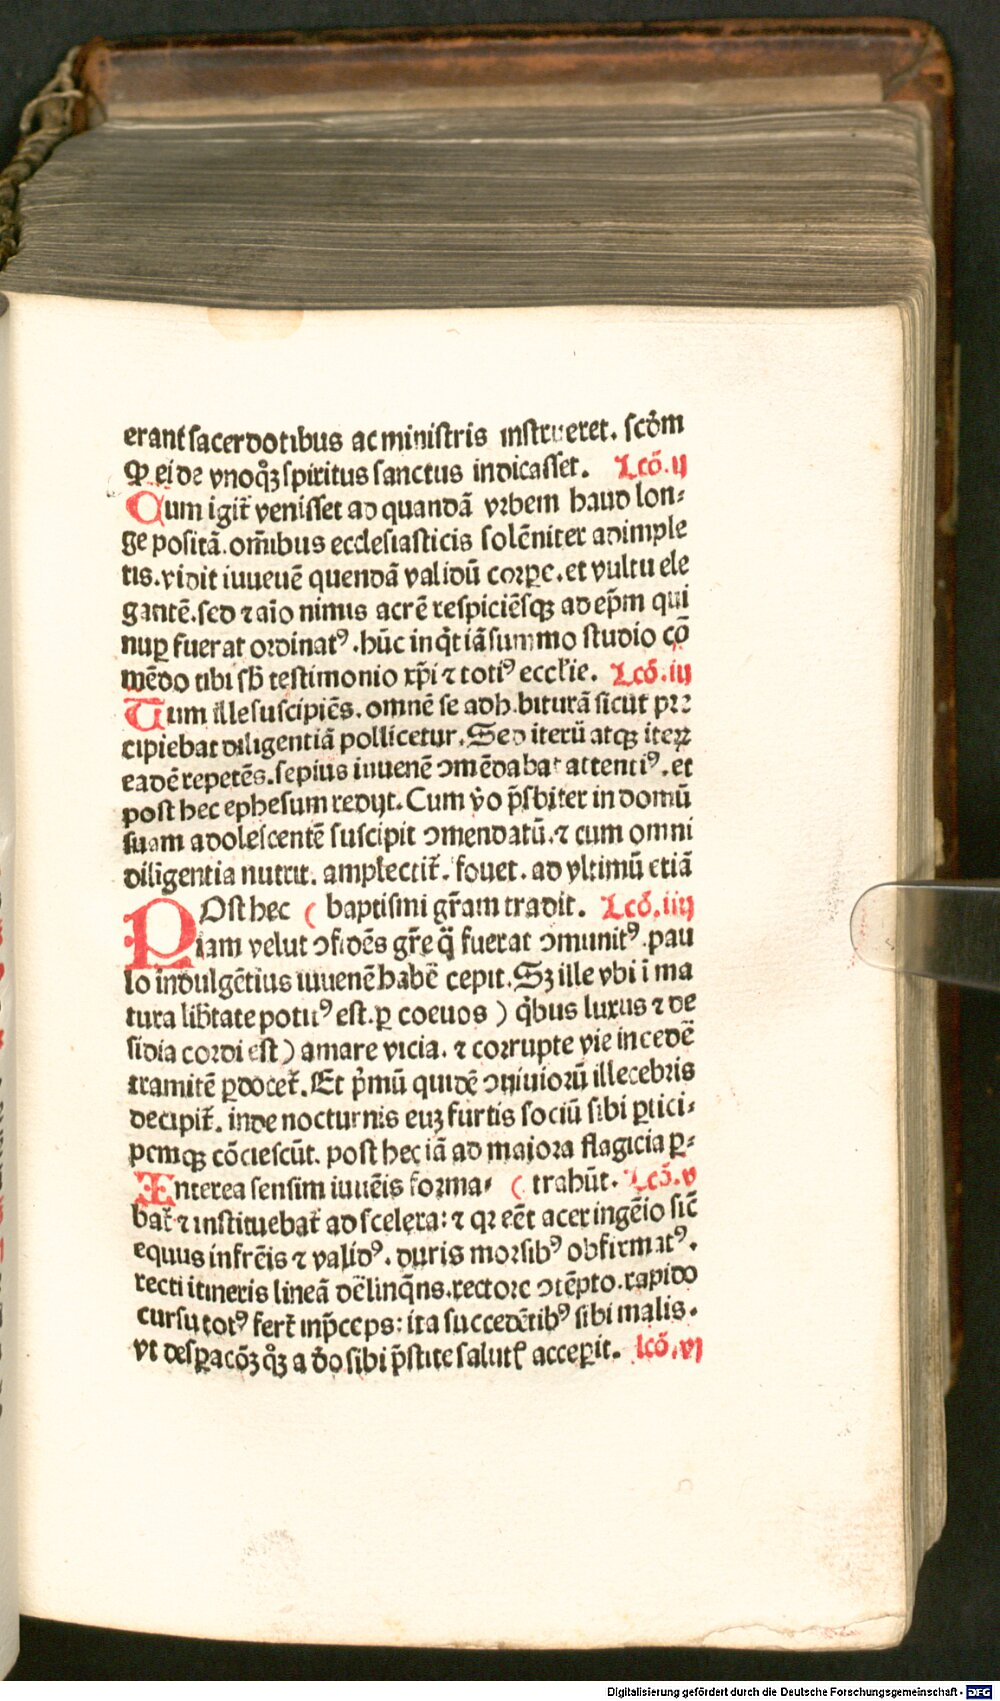 erant sacerdotibus ac ministris instrueret. scd̄m
ꝙ ei de vnoq̄ꝫ spiritus sanctus indicasset. Lcō.ij
Cum igit̄ venisset ad quandā vrbem haud lon⸗
ge positā. om̄ibus ecclesiasticis solēniter adimple
tis. vidit iuuenē quendā validū corpe. et vultu ele
gantē. sed ⁊ aīo nimis acrē respiciēsqꝫ ad ep̄m qui
nuꝑ fuerat ordinatꝰ. hūc inq̄t iā summo studio cō
mēdo tibi sb̄ testimonio xp̄i ⁊ totiꝰ eccl̄ie. Lcō.iij
Tum ille suscipiēs. omnē se adhibiturā sicut pre
cipiebat diligentiā pollicetur. Sed iterū atqꝫ iteꝝ
eadē repetēs. sepius iuuenē ↄmēdabat attentiꝰ. et
post hec ephesum redijt. Cum v̄o p̄sbiter in domū
suam adolescentē suscipit ↄmendatū. ⁊ cum omni
diligentia nutrit. amplectit̄. fouet. ad vltimū etiā
POst hec ( baptismi gr̄am tradit. Lcō.iiij
iam velut ↄfidēs gr̄e q̄ fuerat ↄmunitꝰ. pau
lo indulgētius iuuenē habē cepit. Sꝫ ille vbi ī ma
tura lib̄tate potitꝰ est. ꝑ coeuos ) q̄bus luxus ⁊ de
sidia cordi est ) amare vicia. ⁊ corrupte vie incedē
tramitē ꝑdocet̄. Et p̄mū quidē ↄuiuiorū illecebris
decipit̄. inde nocturnis euꝫ furtis sociū sibi ꝑtici⸗
pemqꝫ cōciescūt. post hec iā ad maiora flagicia ꝑ⸗
Interea sensim iuuēis forma⸗ ( trahūt. Lcō.v
bat̄ ⁊ instituebat̄ ad scelera: ⁊ qꝛ eēt acer ingēio sic̄
equus infrēis ⁊ validꝰ. duris morsibꝰ obfirmatꝰ.
recti itineris lineā dēlinq̄ns. rectore ↄtēpto. rapido
cursu totꝰ fert̄ inp̄ceps: ita succedētibꝰ sibi malis.
vt desꝑacōꝫ q̄ꝫ a dō sibi p̄stite salutꝭ acceꝑit. lcō.vj
Digitalisierung gefördert durch die Deutsche Forschungsgemeinschaft - DFG